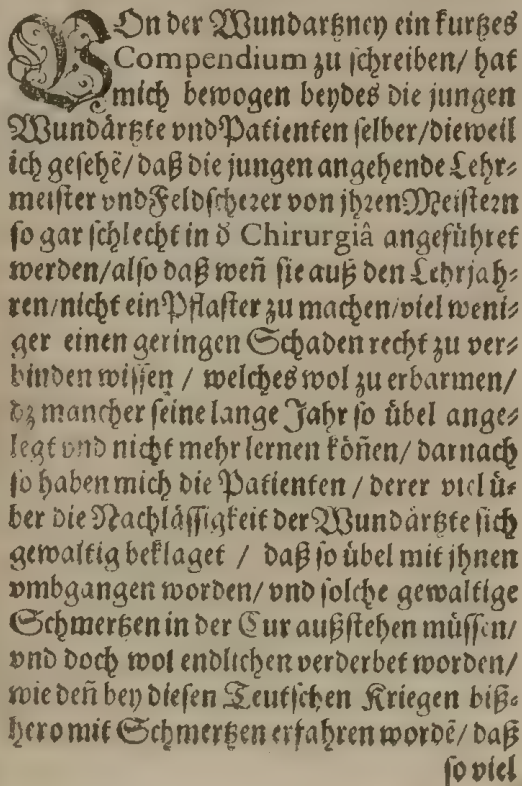 VOn der Wundartzney ein kurtzes
Compendium zu schreiben/ hat
mich bewogen beydes die jungen
Wundärtzte vnd Patienten selber/dieweil
ich gesehē/daß die jungen angehende Lehr⸗
meister vnd Feldscherer von jhren Meistern
so gar schlecht in d̄ Chirurgiâ angeführet
werden/also daß weñ sie auß den Lehrjah⸗
ren/nicht ein Pflaster zu machen/viel weni⸗
ger einen geringen Schaden recht zu ver⸗
binden wissen / welches wol zu erbarmen/
dz mancher seine lange Jahr so übel ange⸗
legt vnd nicht mehr lernen köñen/ darnach
so haben mich die Patienten / derer viel ü⸗
ber die Nachlässigkeit der Wundärtzte sich
gewaltig beklaget / daß so übel mit jhnen
vmbgangen worden/ vnd solche gewaltige
Schmertzen in der Cur außstehen müssen/
vnd doch wol endlichen verderbet worden/
wie deñ bey diesen Teutschen Kriegen biß⸗
hero mit Schmertzen erfahren wordē/ daß
so viel